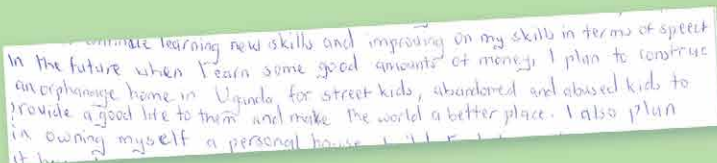 learning new skills and improving on my skills in terms of speech
In the future when I earn some good amounts of money, I plan to construc
an orphanage home in Uganda, for street kids, abandoned and abused kids to
rovide a good life to them and make the world a better place. I also plan
in owning myself a personal
it